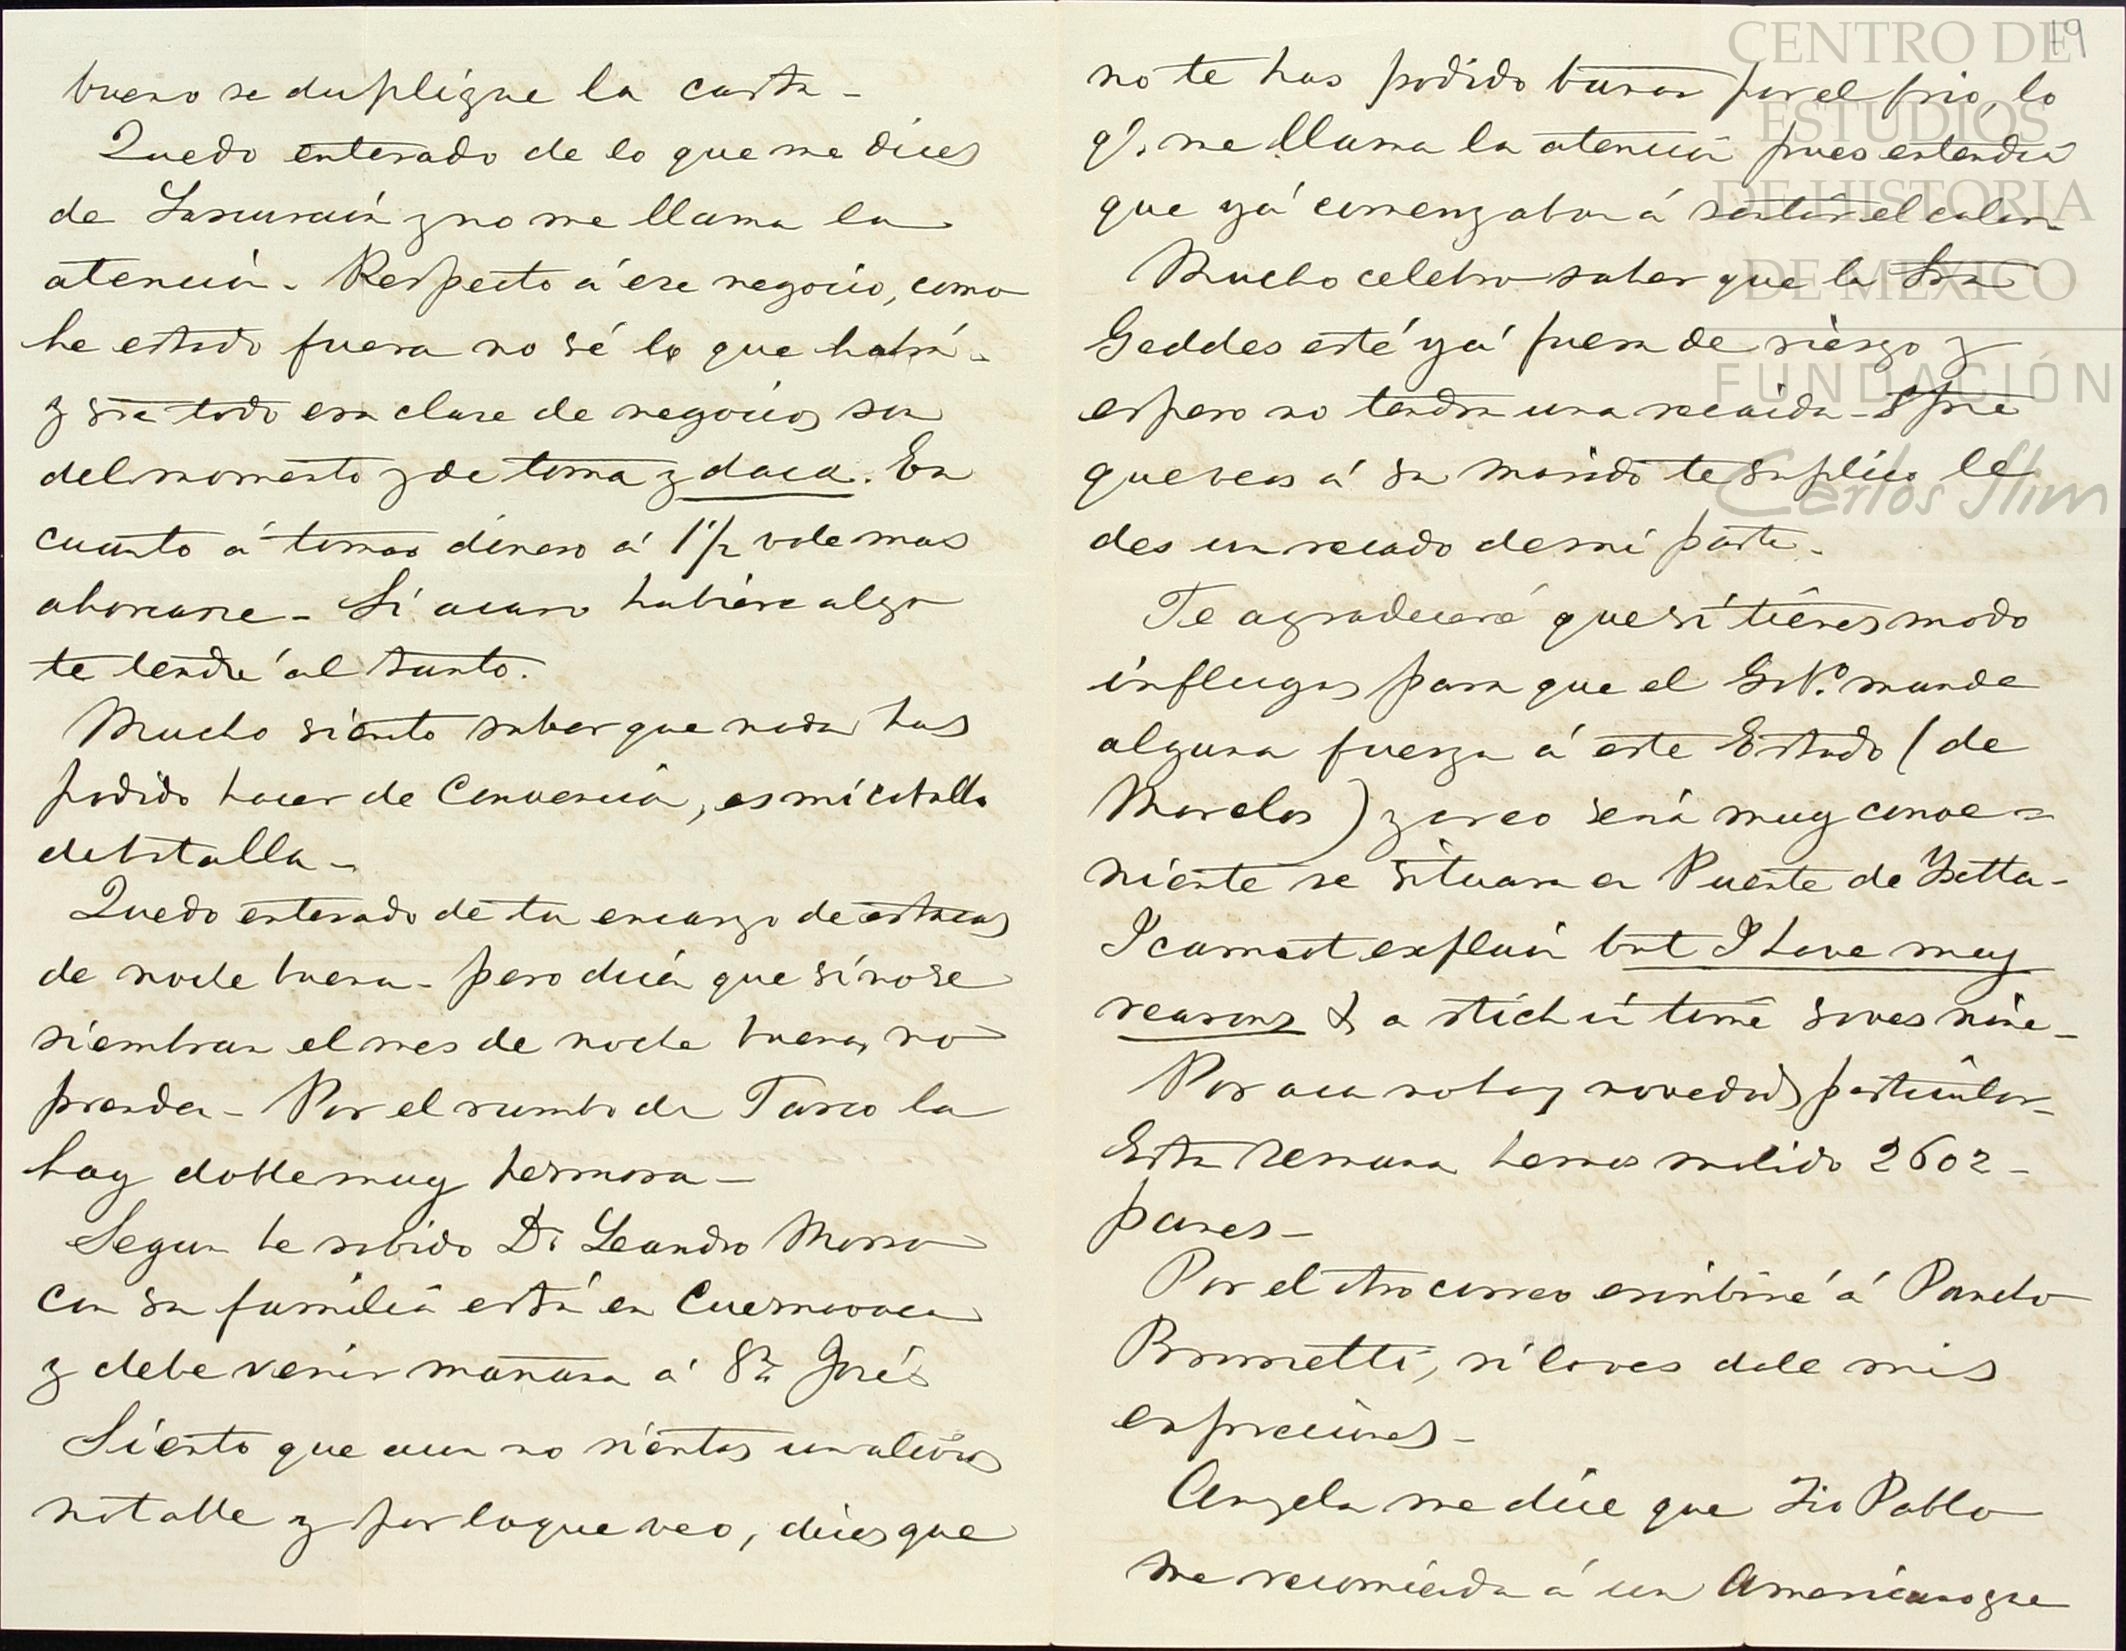 bueno se duplique la carta -
Quedo enterado de lo que me dices
de Lascurain y no me llama la
atención - Respecto á ese negocio, como
he estado fuera no sé lo que habrá -
y sre todo esa clase de negocios son
del momento y de toma y daca. En
cuanto á tomar dinero á 1½ vale mas
ahorcarse - Si acaso hubiere algo
te tendré al tanto.
Mucho siento saber que nada has
podido hacer de Convención, es mi caballo
de batalla -
Quedo enterado de tu encargo de estacas
de noche buena - pero dicen que si no se
siembran el mes de noche buena, no
prenden - Por el rumbo de Tasco la
hay doble muy hermosa -
Segun he sabido Dn Leandro
con su familia está en Cuernavaca
y debe venir mañana á Sn José
Siento que aun no sientas un alivio
notable y por lo que veo, dices que
19
no te has podido bañar por el frio, lo
q. me llama la atención pues entendia
que yá comenzaban á sentir el calor -
Mucho celebro saber que la Sra
Geddes esté yá fuera de riesgo y
espero no tendra una recaida - Spre
que veas á su marido te suplico le
des un recado de mi parte -
Te agradeceré que si tienes modo
influyas para que el Gob.o mande
alguna fuerza á este Estado (de
Morelos) y creo será muy conve=
niente se situara en Puente de Ixtla -
I cannot explain but I have my
reasons & a stich in time saves nine -
Por aca no hay novedad particular -
Esta semana hemos molido 2602 -
panes -
Por el otro correo escribiré á Pancho
si lo ves dale mis
expreciones -
Angela me dice que Tio Pablo
me recomienda á un Americano que
CENTRO DE
ESTUDIOS
DE HISTORIA
DE MÉXICO
FUNDACIÓN
Carlos Slim